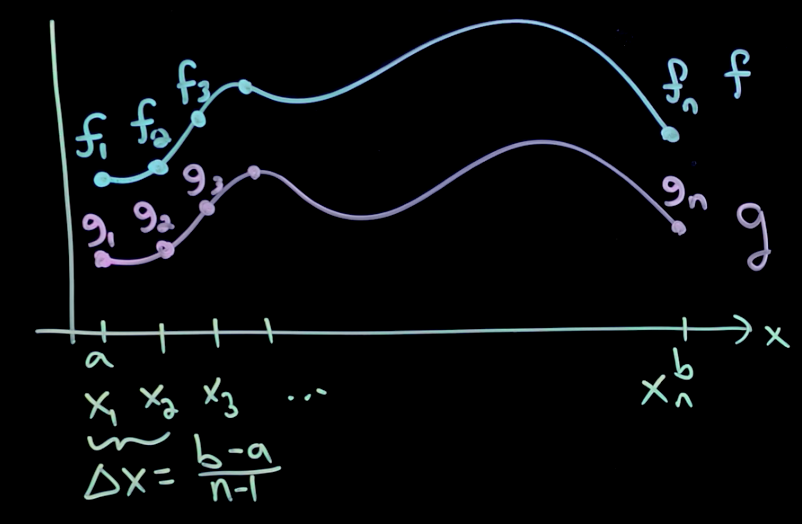 f₁ f₂ f₃ fₙ f
g₁ g₂ g₃ gₙ g
x
a b
x₁ x₂ x₃ ... xₙ
Δx = (b-a)/(n-1)